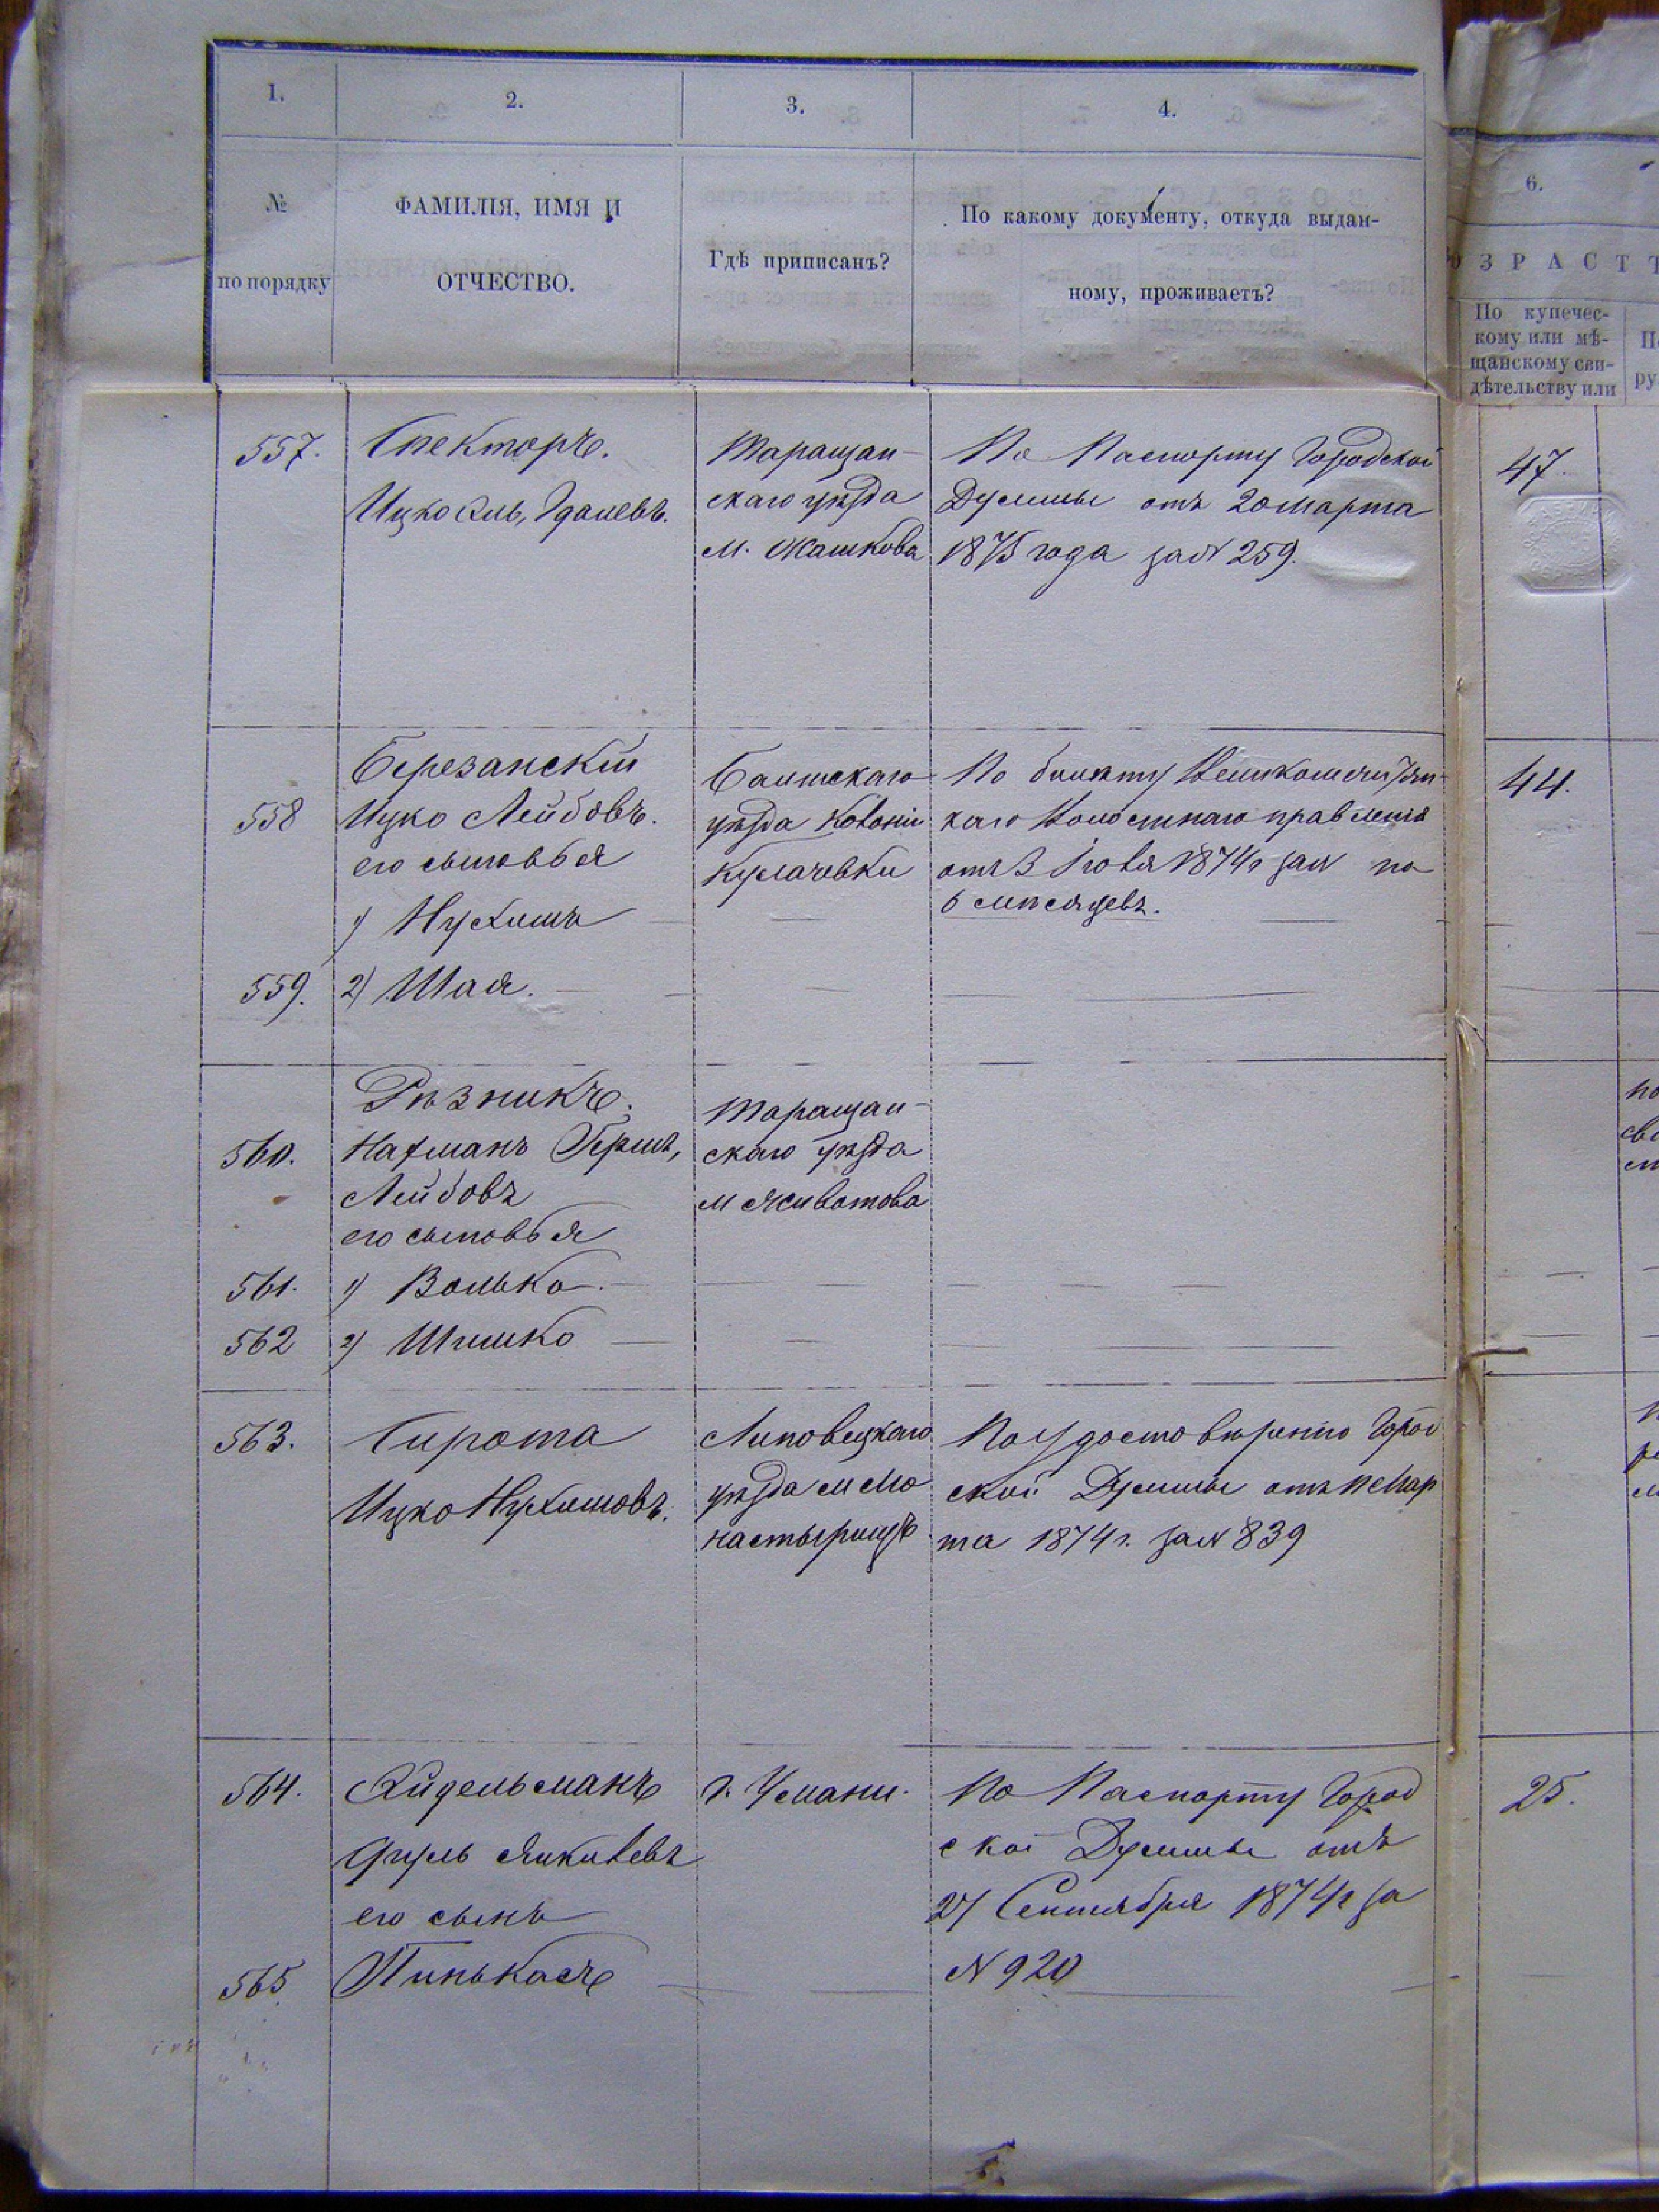 1.
2.
3.
4.
6.
№
по порядку
ФАМИЛІЯ, ИМЯ И
ОТЧЕСТВО.
Гдѣ приписанъ?
По какому документу, откуда выдан-
ному, проживаетъ?
ЗРАСТ
По купечес-
кому или мѣ-
щанскому сви-
дѣтельству или
557.
Спекторъ.
Ицко Эль, Гдалевъ.
Таращан-
скаго уѣзда
м. Жашкова
По Паспорту Городской
Думмы отъ 20 Марта
1875 года за N 259.
47.
558
Березанскій
Ицко Лейбовъ.
его сыновья
1) Нухимъ
Балтскаго
уѣзда Колоніи
Кулачевки
По билету
каго Волостнаго правленія
отъ 3 Іюля 1874 г за N на
6 мѣсяцевъ.
44.
559.
2) Шая.
560.
Рѣзникъ.
Нахманъ Гершъ,
Лейбовъ
его сыновья
Таращан-
скаго уѣзда
м Животова
561.
1) Волько.
562
2) Шимко
563.
Сирота
Ицко Нухимовъ.
Липовецкаго
уѣзда м Мо
настырище
По удостовѣренію Город
ской Думмы отъ Мар
та 1874 г. за N 839
564.
Эйдельманъ
Янкелевъ
его сынъ
г. Умани.
По Паспорту Город
ской Думмы отъ
27 Сентября 1874 г за
N 920
25.
565
Пинькасъ